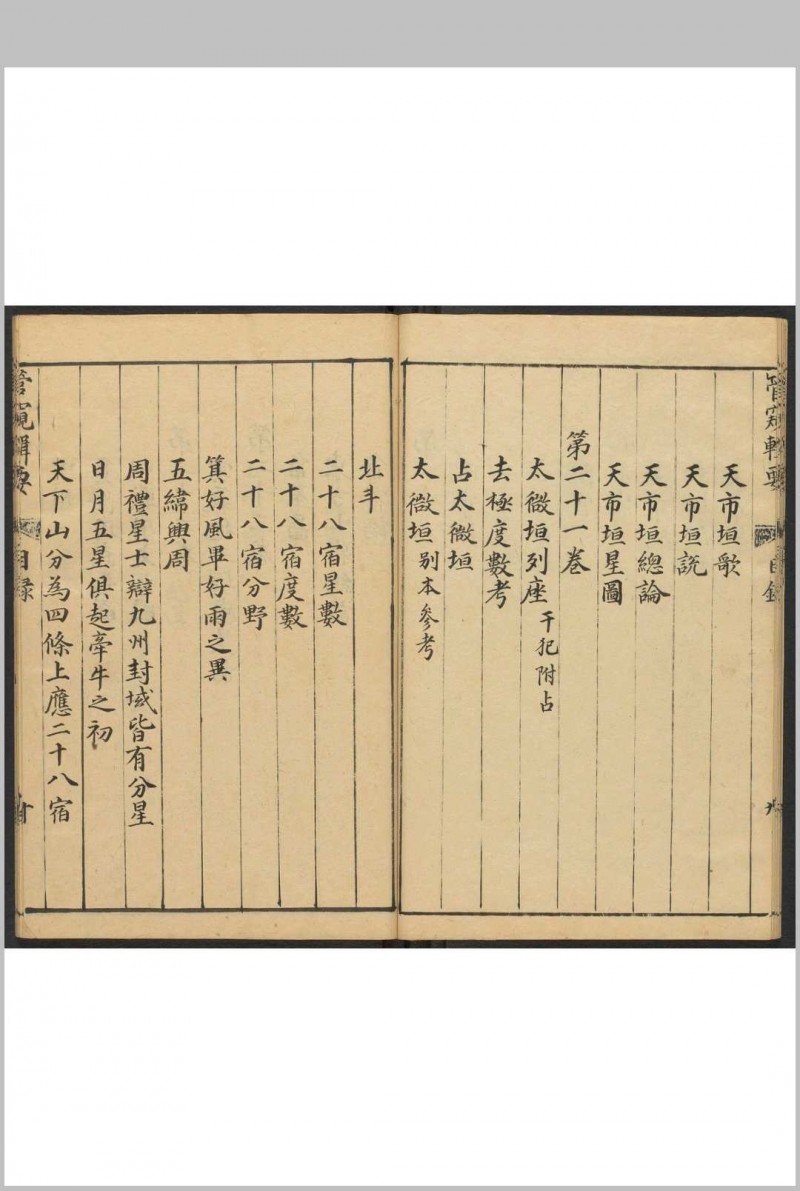 天市垣歌
天市垣説
天市垣總論
天市垣星圖
第二十一卷
太微垣列座 干犯附占
去極度數考
占太微垣
太微垣 别本參考
北斗
二十八宿星數
二十八宿度數
二十八宿分野
箕好風畢好雨之異
五緯興周
周禮星士辯九州封域皆有分星
日月五星俱起牽牛之初
天下山分為四條上應二十八宿
管窺輯要 目録